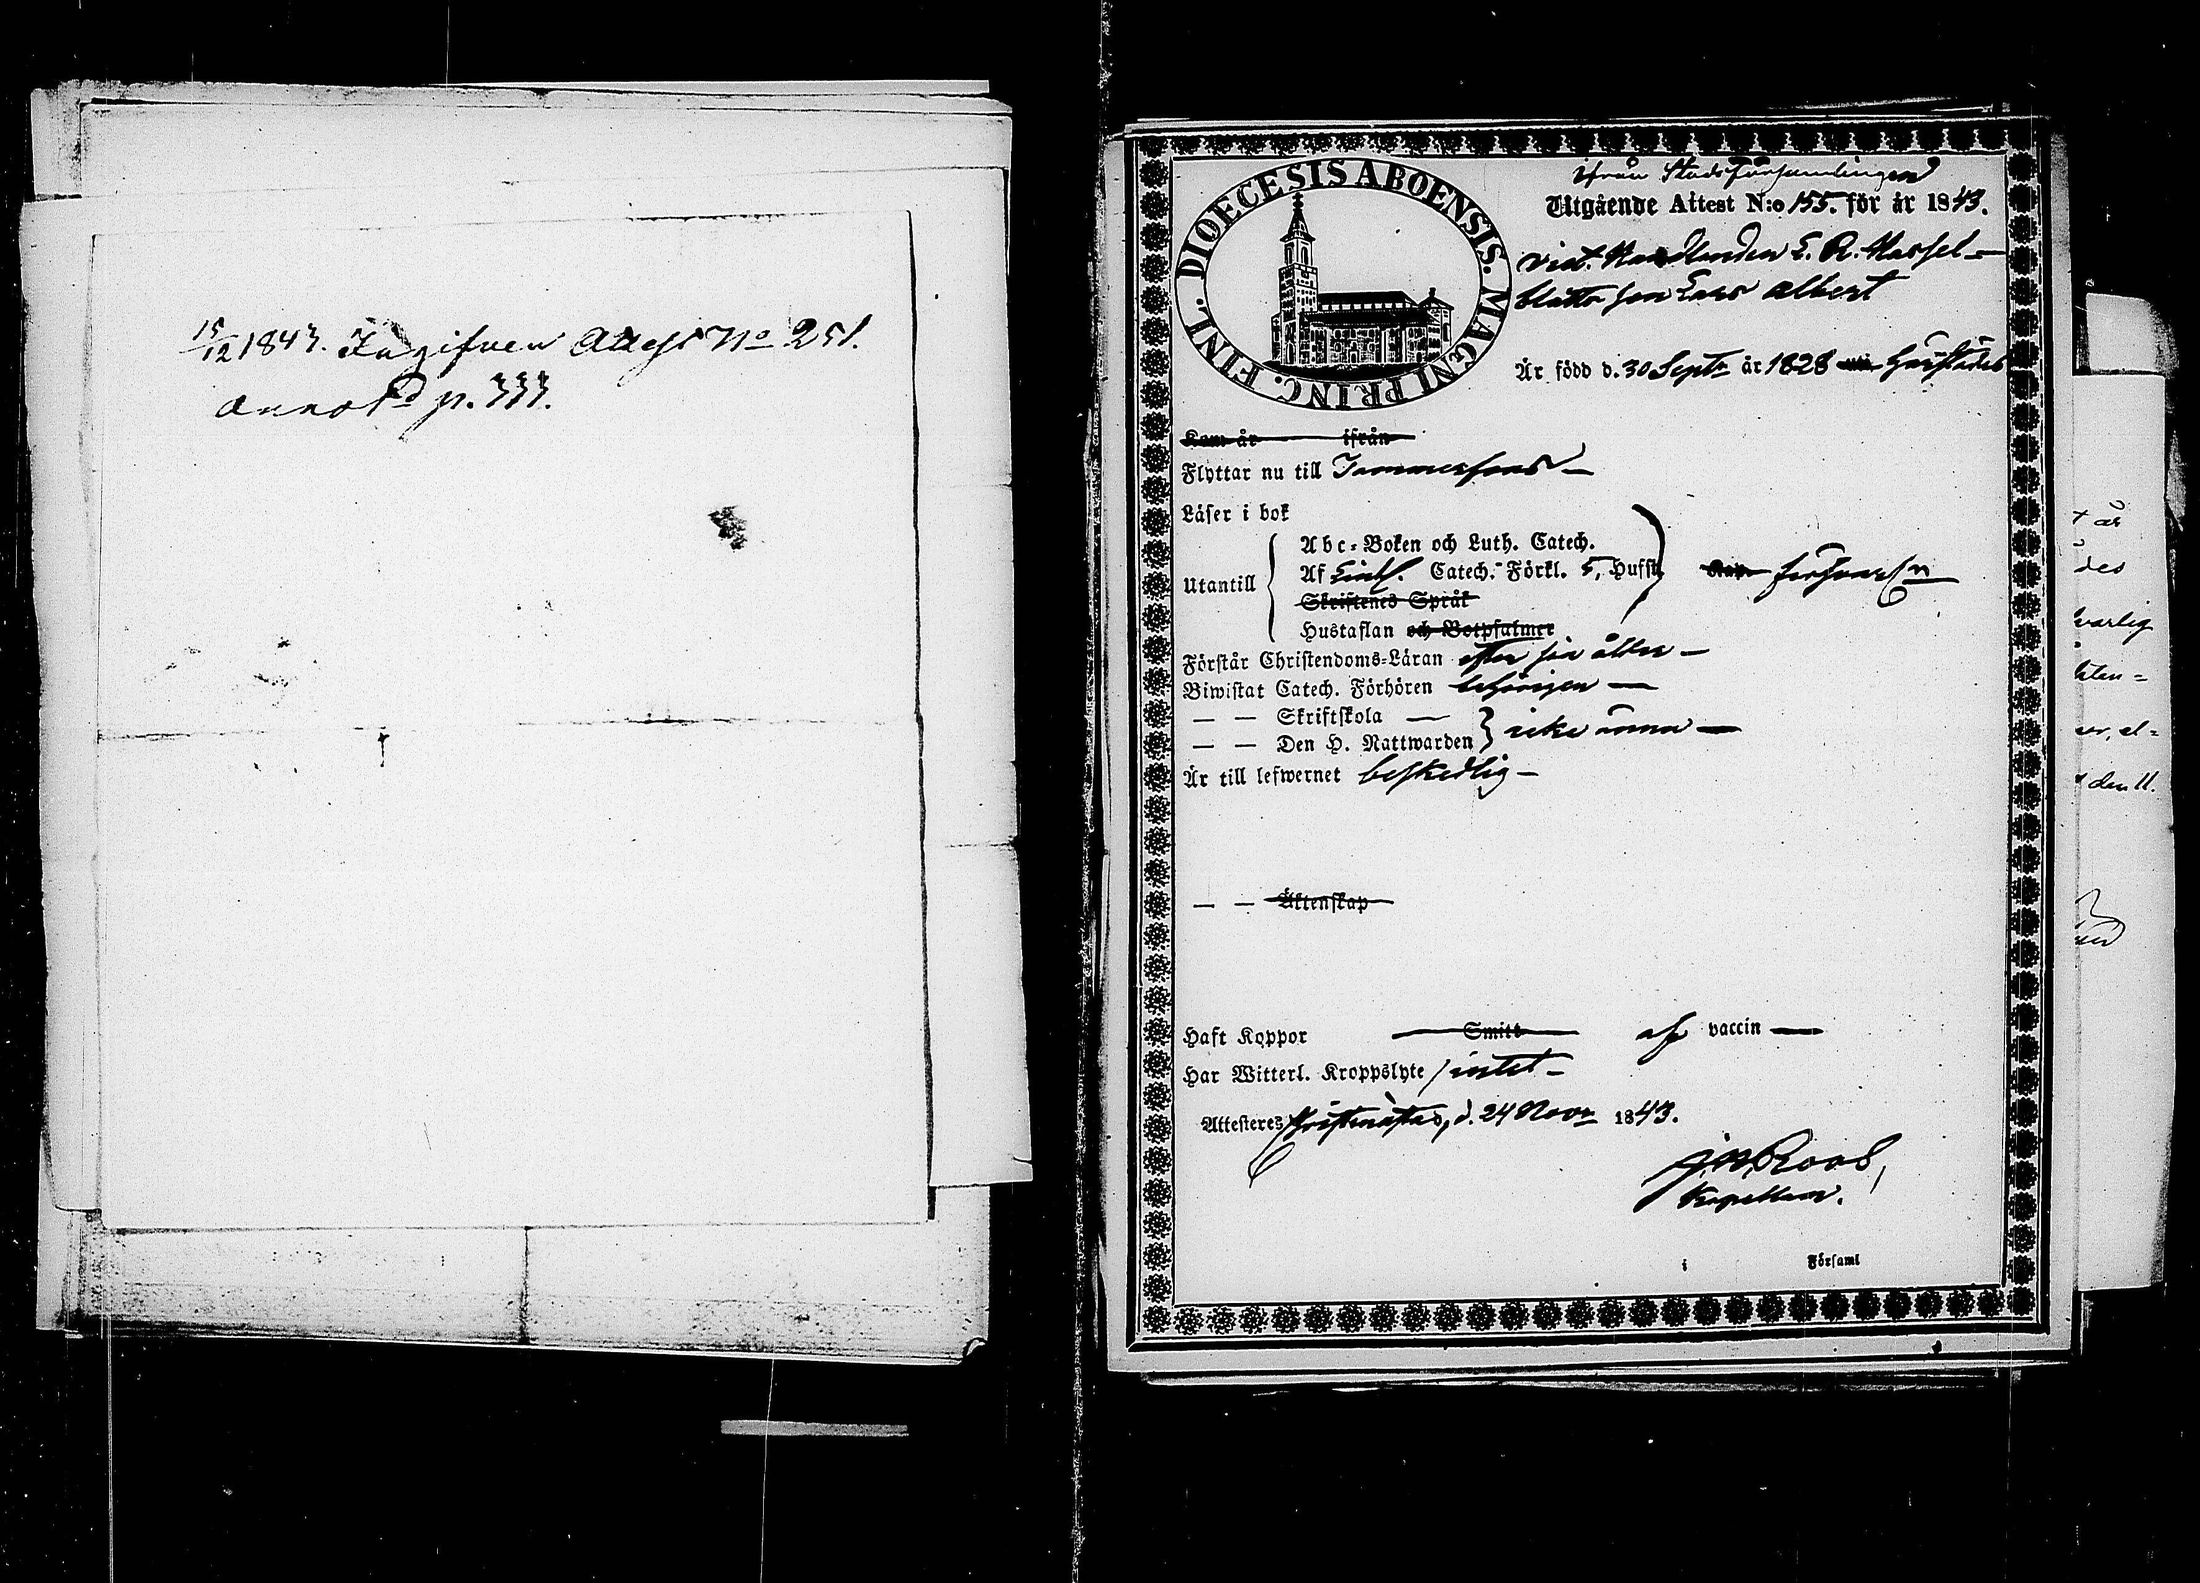 15/12 1843. Ingifven Attest No 251.
Annot<sup>d</sup> p. 333.
DIOECESIS ABOENSIS. MAGNI PRINC. FINL.
ifrån Stadsförsamlingen
Utgående Attest N:o 155. för år 1843.
vict. Handlanden E. R. Hassel-
blatts son Lars Albert
Är född d. 30 Sept. år 1828 härstädes
Kom år ifrån
Flyttar nu till Tammerfors
Läser i bok
Abc-Boken och Luth. Catech.
Utantill Af Catech. Förkl. 5, Hufst.
Skriftenes Språk
Hustaflan och Botpsalmer
Förstår Christendoms-Läran efter sin ålder
Biwistat Catech. Förhören behörigen
— — Skriftskola
— — Den H. Nattwarden icke ännu
Är till lefwernet beskedlig
— — Äktenskap
Haft Koppor Smitt af vaccin
Har Witterl. Kroppslyte intet
Attesteres Kristinestad, d. 24 Nov. 1843.
Roos,
Kapellan.
i Församl
t är
des
varlig
kten=
er, el=
den 11.